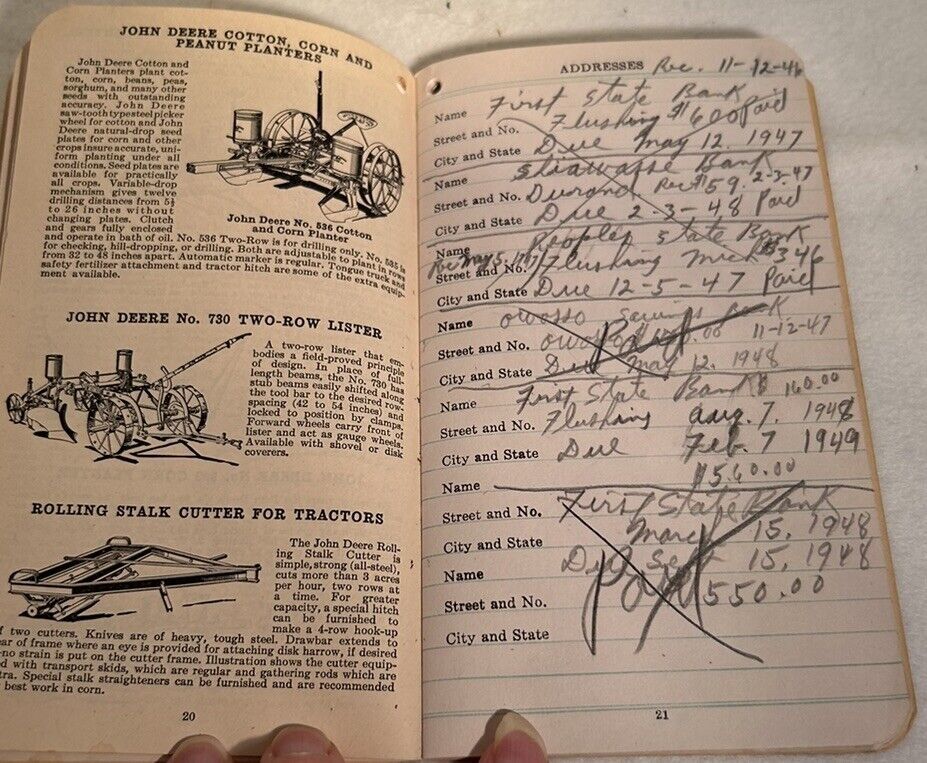 JOHN DEERE COTTON, CORN AND
PEANUT PLANTERS
John Deere Cotton and
Corn Planters plant cot-
ton, corn, beans, peas,
sorghum, and many other
seeds with outstanding
accuracy. John Deere
saw-tooth type steel picker
wheel for cotton and John
Deere natural-drop seed
plates for corn and other
crops insure accurate, uni-
form planting under all
conditions. Seed plates are
available for practically
all crops. Variable-drop
mechanism gives twelve
drilling distances from 5½
to 26 inches without
changing plates. Clutch
and gears fully enclosed
and operate in bath of oil. No. 536 Two-Row is for drilling only. No. 535 is
for checking, hill-dropping, or drilling. Both are adjustable to plant in rows
from 32 to 48 inches apart. Automatic marker is regular. Tongue truck and
safety fertilizer attachment and tractor hitch are some of the extra equip-
ment available.
John Deere No. 536 Cotton
and Corn Planter
JOHN DEERE No. 730 TWO-ROW LISTER
A two-row lister that em-
bodies a field-proved principle
of design. In place of full-
length beams, the No. 730 has
stub beams easily shifted along
the tool bar to the desired row-
spacing (42 to 54 inches) and
locked to position by clamps.
Forward wheels carry front of
lister and act as gauge wheels.
Available with shovel or disk
coverers.
ROLLING STALK CUTTER FOR TRACTORS
The John Deere Roll-
ing Stalk Cutter is
simple, strong (all-steel),
cuts more than 3 acres
per hour, two rows at
a time. For greater
capacity, a special hitch
can be furnished to
make a 4-row hook-up
f two cutters. Knives are of heavy, tough steel. Drawbar extends to
ear of frame where an eye is provided for attaching disk harrow, if desired
-no strain is put on the cutter frame. Illustration shows the cutter equip-
ed with transport skids, which are regular and gathering rods which are
tra. Special stalk straighteners can be furnished and are recommended
best work in corn.
20
ADDRESSES Rec. 11-12-46
Name First State Bank
Street and No. Flushing $600 Paid
City and State Due May 12. 1947
Name Shiawasse Bank
Street and No. Durand Rec $159. 2-3-47
City and State Due 2-3-48 Paid
Name Peoples State Bank
Rec May 5, 1947
Street and No. Flushing Mich $346
City and State Due 12-5-47 Paid
Name Owosso Savings Bank
Street and No. Owosso 00 11-12-47
Paid
City and State Due May 12. 1948
Name First State Bank $160.00
Street and No. Flushing Aug. 7. 1948
City and State Due Feb. 7 1949
Name $560.00
Street and No. First State Bank
City and State March 15, 1948
Name Due Sept 15, 1948
Street and No. $550.00
Paid
City and State
21